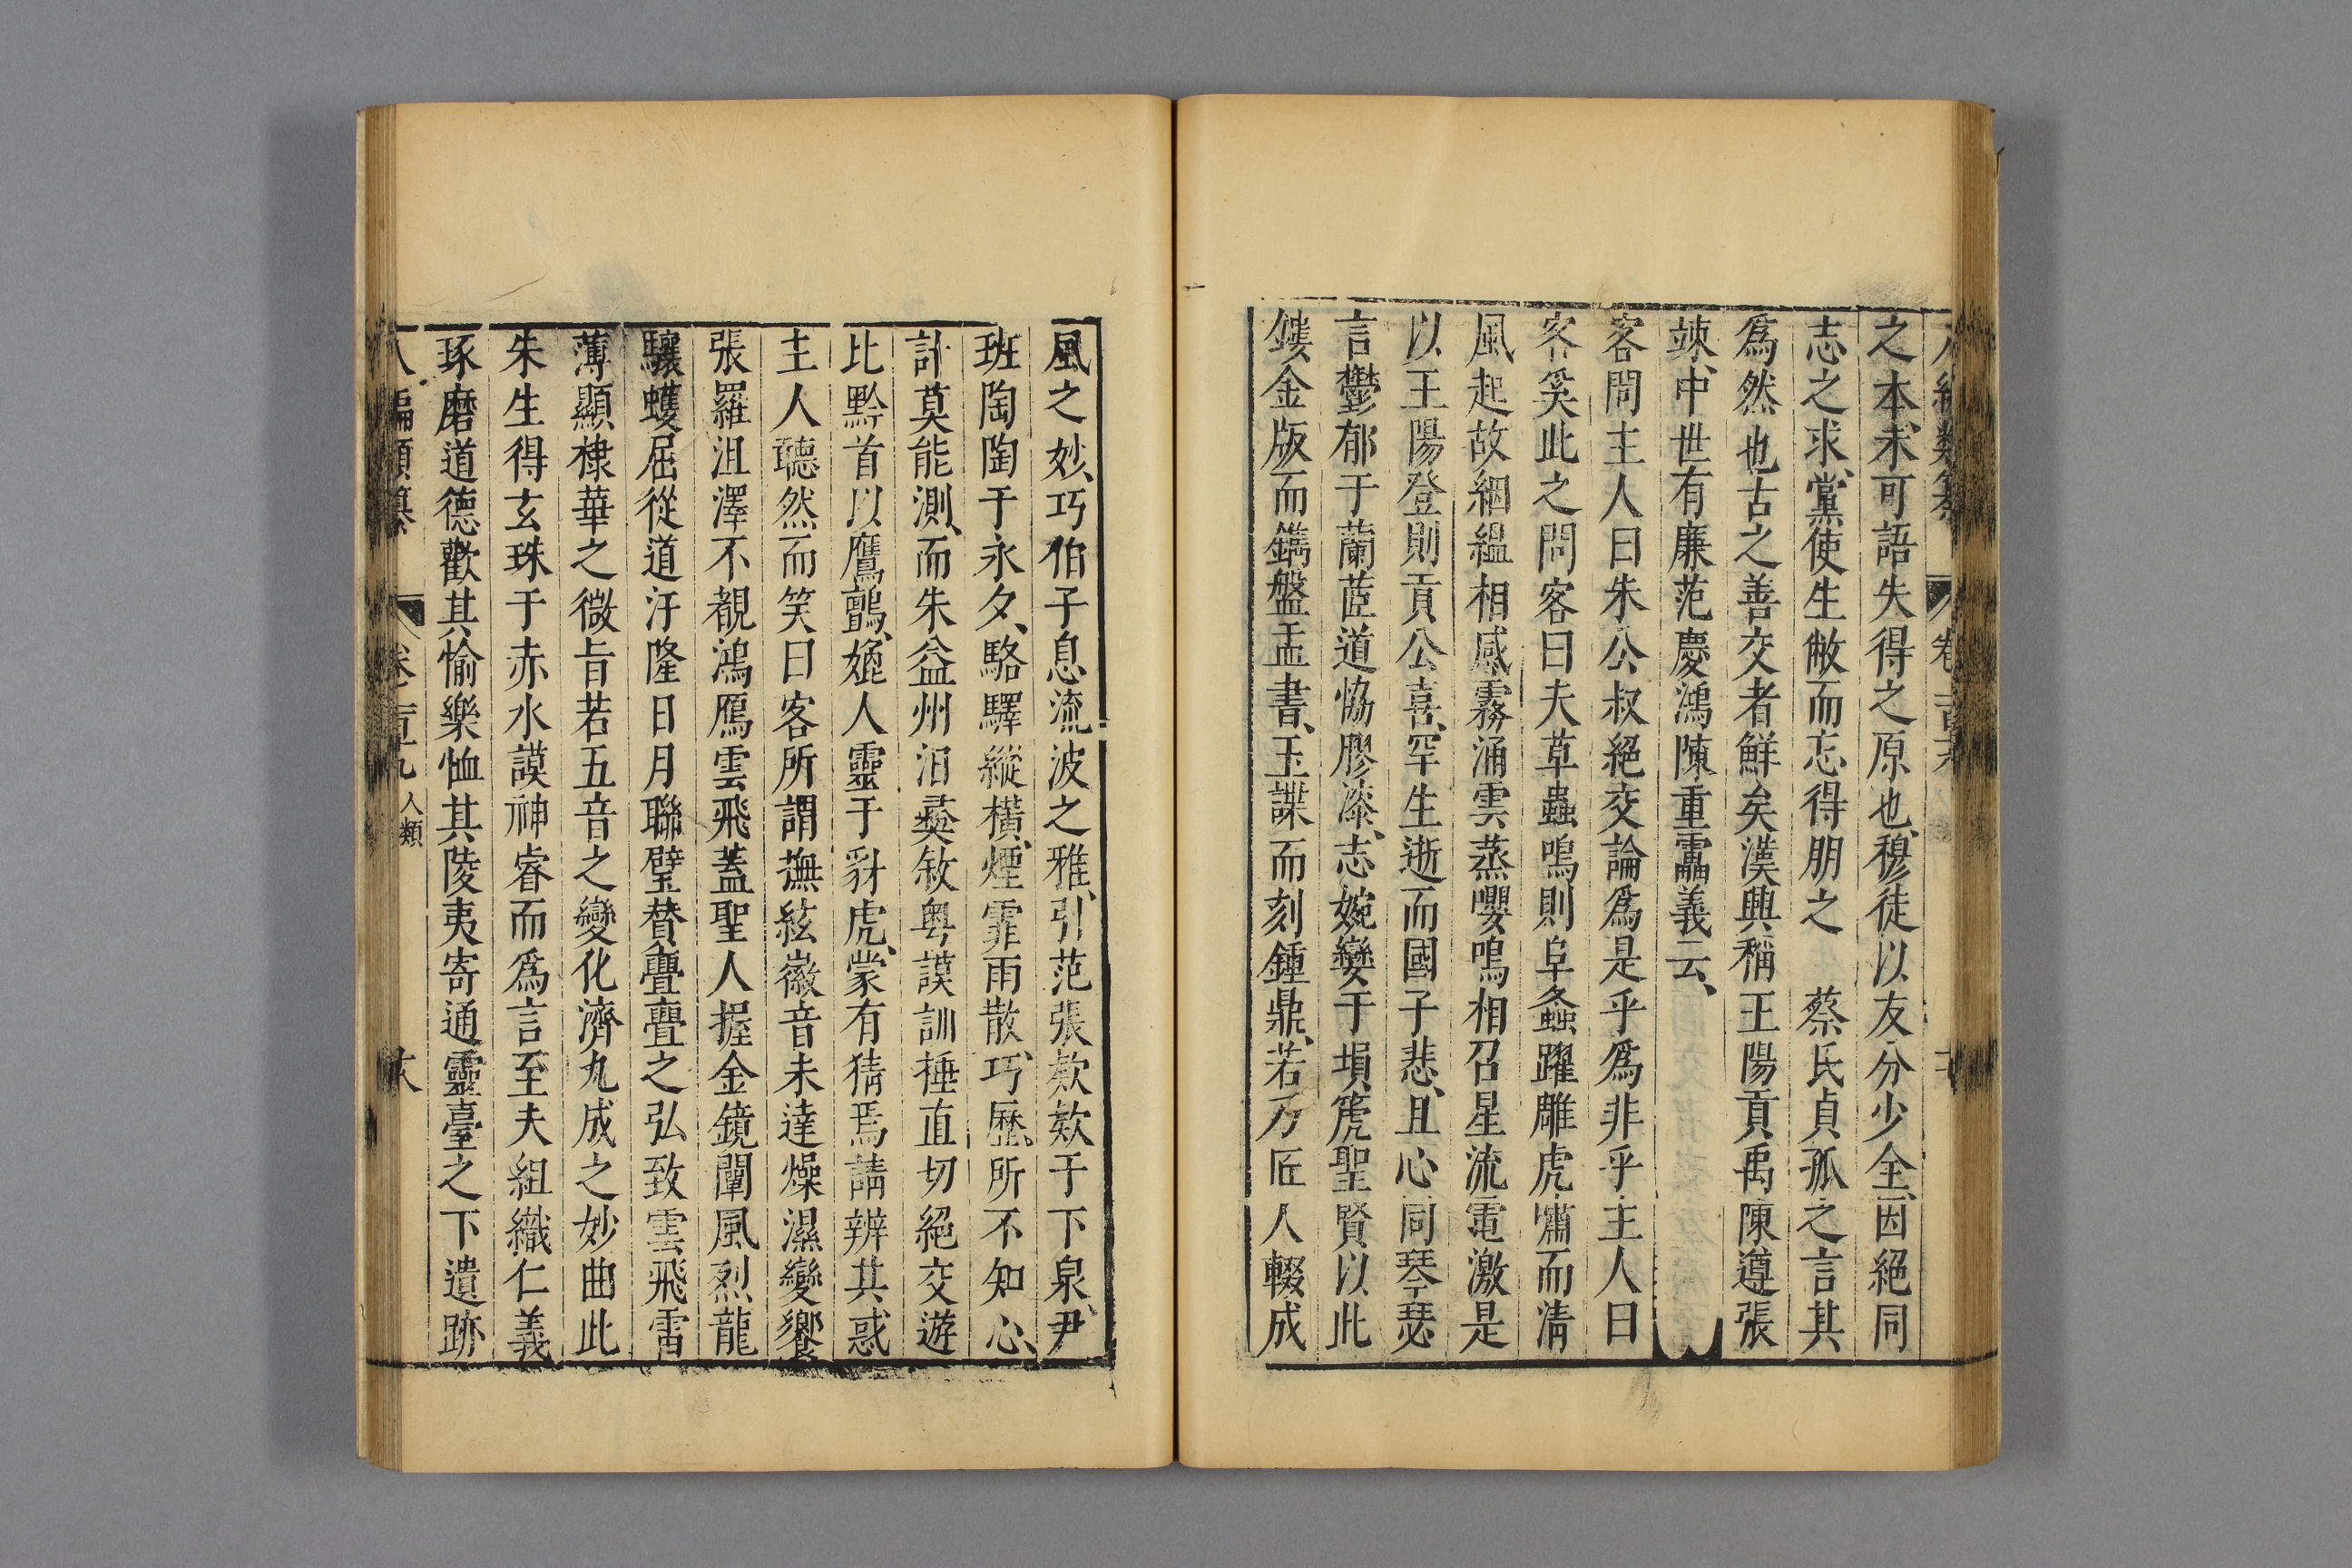 之本、未可語失得之原也、穆徒以友分少全、因絕同
志之求、黨使生敝而忘得朋之　蔡氏貞孤之言其
爲然也古之善交者鮮矣漢興稱王陽貢禹陳遵張
竦、中世有廉范慶鴻陳重雷義云、
客問主人曰朱公叔絕交論爲是乎爲非乎主人曰
客奚此之問客曰夫草蟲鳴則阜螽躍雕虎嘯而清
風起故絪縕相感霧涌雲蒸嚶鳴相召星流電激是
以王陽登則貢公喜、罕生逝而國子悲、且心同琴瑟
言鬱郁于蘭茝道恊膠漆、志婉孌于塤箎聖賢以此
鏤金版而鐫盤盂書、玉諜而刻鍾鼎、若乃匠人輟成
風之妙、巧伯子息流波之雅、引范張欵欵于下泉、尹
班陶陶于永夕、駱驛縱橫、煙霏雨散、巧歷、所不知心、
計莫能測、而朱益州汨彝敘粤謨訓捶直切絕交遊
比黔首以鷹鸇、媲人靈于豺虎、蒙有猜焉請辨其惑
主人听然而笑曰客所謂撫絃徽音未達燥濕變響
張羅沮澤不覩鴻鴈雲飛蓋聖人握金鏡闡風烈龍
驤蠖屈從道汙隆日月聯璧贊亹亹之弘致雲飛雷
薄顯棣華之微旨若五音之變化濟九成之妙曲此
朱生得玄珠于赤水謨神睿而爲言至夫組織仁義
琢磨道德歡其愉樂恤其陵夷寄通靈臺之下遺跡
八編類纂　卷之百九　人類